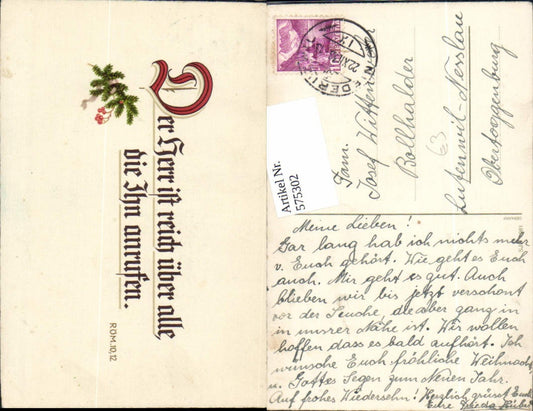 Der Herr ist reich über alle
die Ihn anrufen.
RÖM. 10, 12
Artikel Nr.
575302
Fam.
Josef Wittenwiler
Rollhalder
Lutenwil-Nesslau
Obertoggenburg
63
Meine Lieben!
Gar lang hab ich nichts mehr
v. Euch gehört. Wie geht es Euch
auch. Mir geht es gut. Auch
blieben wir bis jetzt verschont
vor der Seuche, die aber gang in
in unsrer Nähe ist. Wir wollen
hoffen dass es bald aufhört. Ich
wünsche Euch fröhliche Weihnacht
u. Gottes Segen zum Neuen Jahr.
Auf frohes Wiedersehn! Herzlich grüsst Euch
Eure